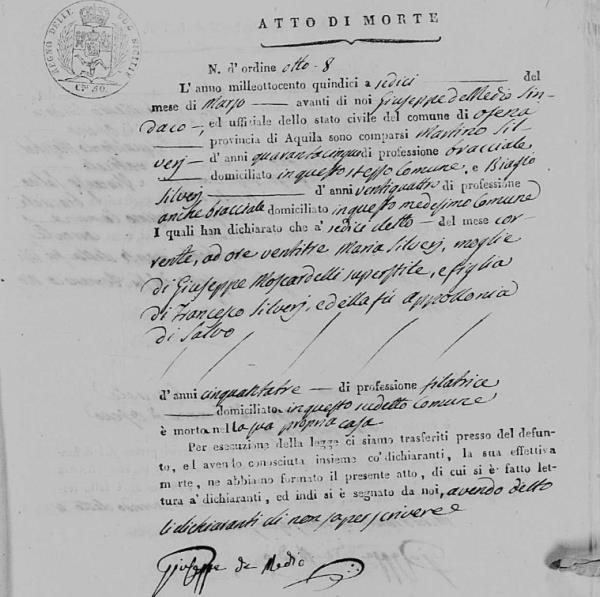 REGNO DELLE DUE SICILIE
Cⁱ 50.
ATTO DI MORTE
N. d' ordine otto - 8
L' anno milleottocento quindici a sedici del
mese di Marzo avanti di noi Giuseppe de Medio Sin-
daco, ed uffiziale dello stato civile del comune di Ofena
provincia di Aquila sono comparsi Martino Sil-
verj d' anni quarantacinque di professione bracciale
domiciliato in questo stesso Comune, e Biagio
Silverj d' anni ventiquattro di professione
anche bracciale domiciliato in questo medesimo Comune
I quali han dichiarato che a' sedici detto del mese cor-
rente, ad ore ventitre Maria Silverj, moglie
di Giuseppe Moscardelli superstite, e figlia
di Francesco Silverj, e della fù Appollonia
di Salvo
d' anni cinquantatre di professione filatrice
domiciliato in questo sudetto Comune
è morto nella sua propria casa
Per esecuzione della legge ci siamo trasferiti presso del defun-
to, ed avendo conosciuta insieme co' dichiaranti, la sua effettiva
morte, ne abbiamo formato il presente atto, di cui si è fatto let-
tura a' dichiaranti, ed indi si è segnato da noi, avendo detto
li dichiaranti di non saper scrivere
Giuseppe de Medio